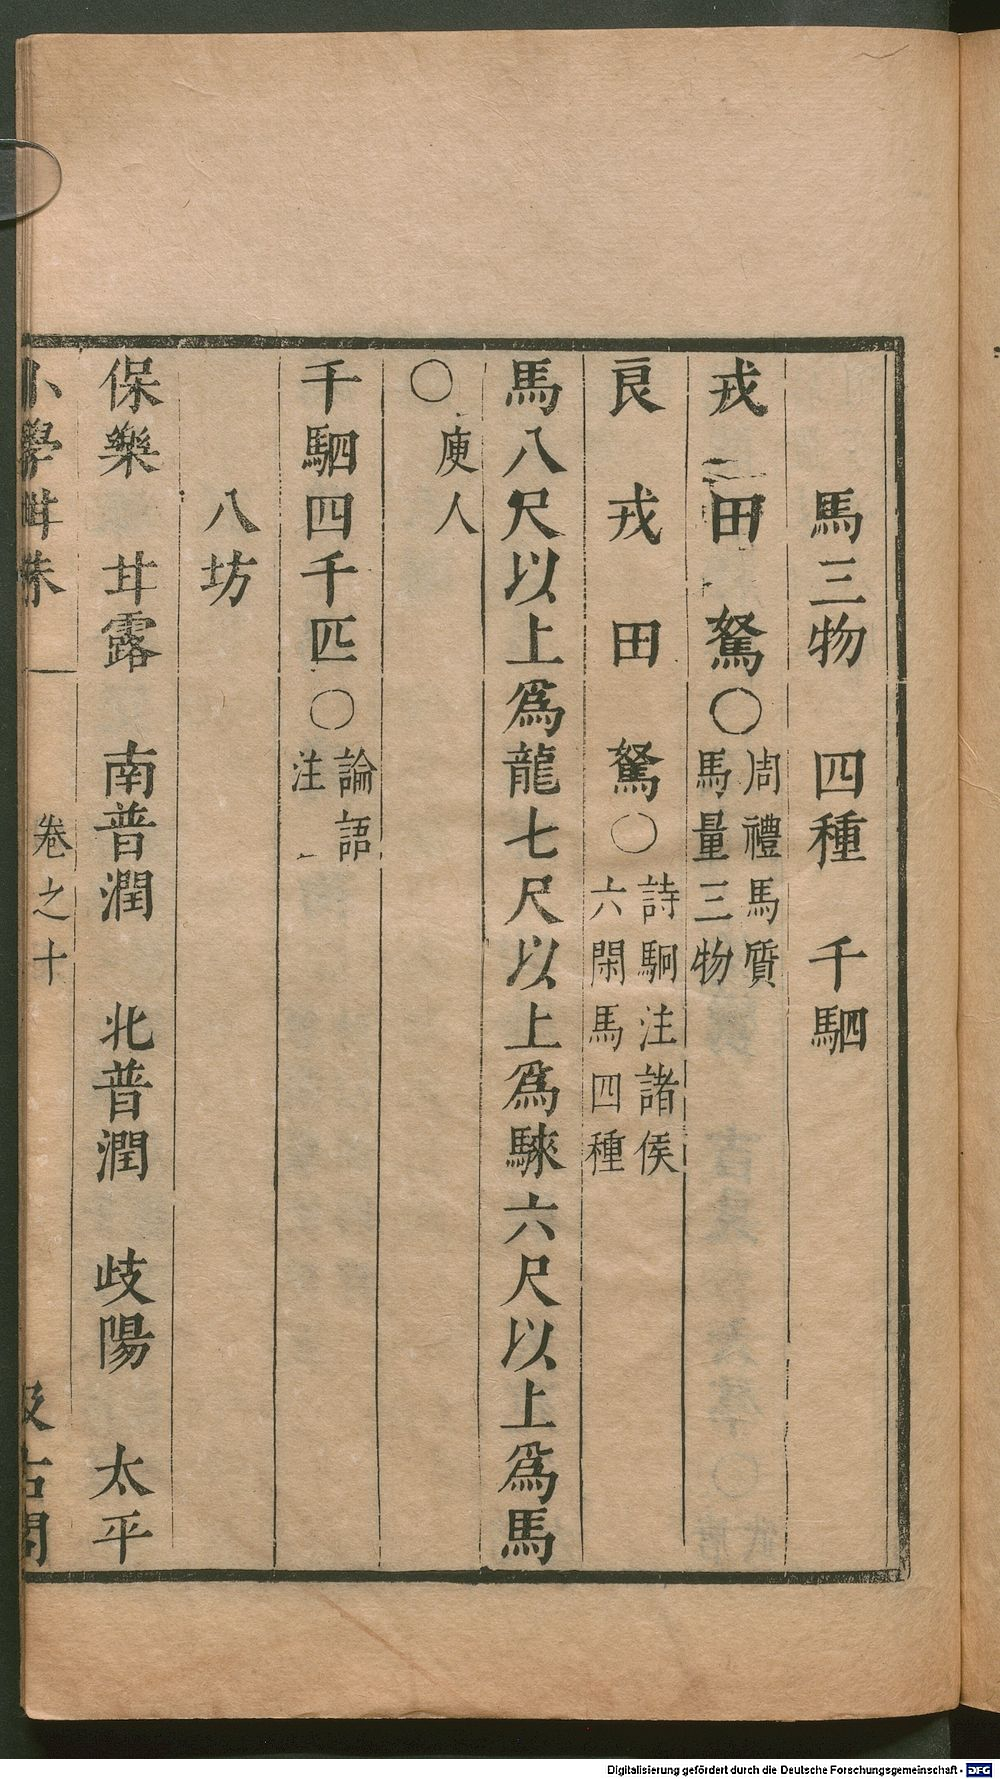 馬三物　四種　千駟
戎　田　駑○周禮馬質
馬量三物
良　戎　田　駑○詩駉注諸侯
六閑馬四種
馬八尺以上爲龍七尺以上爲騋六尺以上爲馬
○庾人
千駟四千匹○論語
注
八坊
保樂　甘露　南普潤　北普潤　歧陽　太平
小學紺珠　卷之十　汲古閣
Digitalisierung gefördert durch die Deutsche Forschungsgemeinschaft - DFG